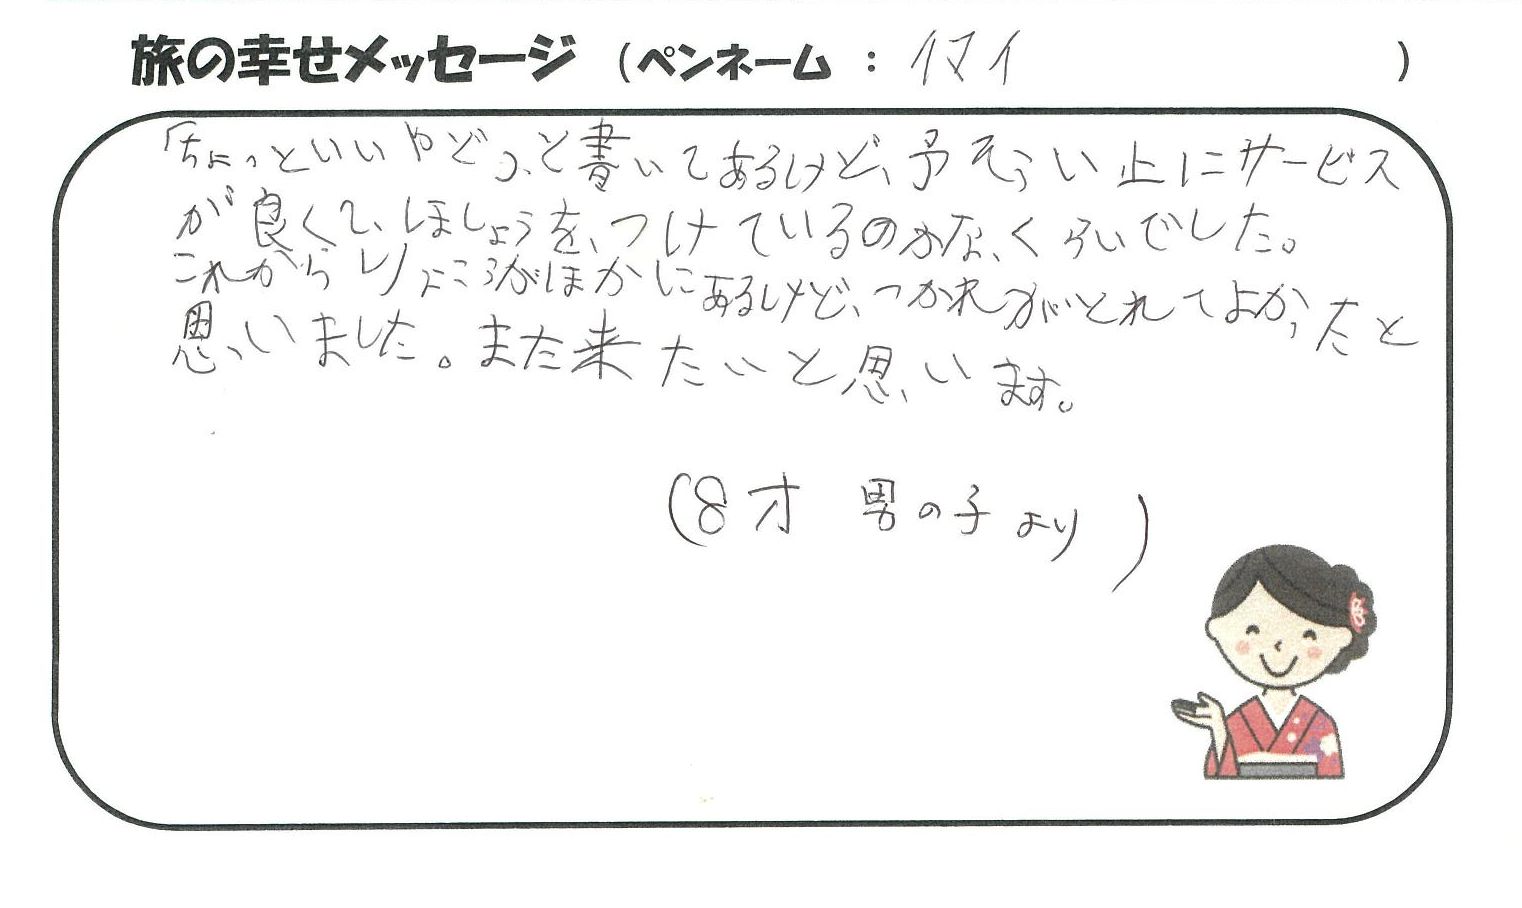 旅の幸せメッセージ (ペンネーム : イマイ )
「ちょっといいやど」と書いてあるけど、予そうい上にサービス
が良くて、ほしょうを、つけているのかな、くらいでした。
これからりょこうがほかにあるけど、つかれがとれてよかったと
思いました。また来たいと思います。
(8才 男の子より )